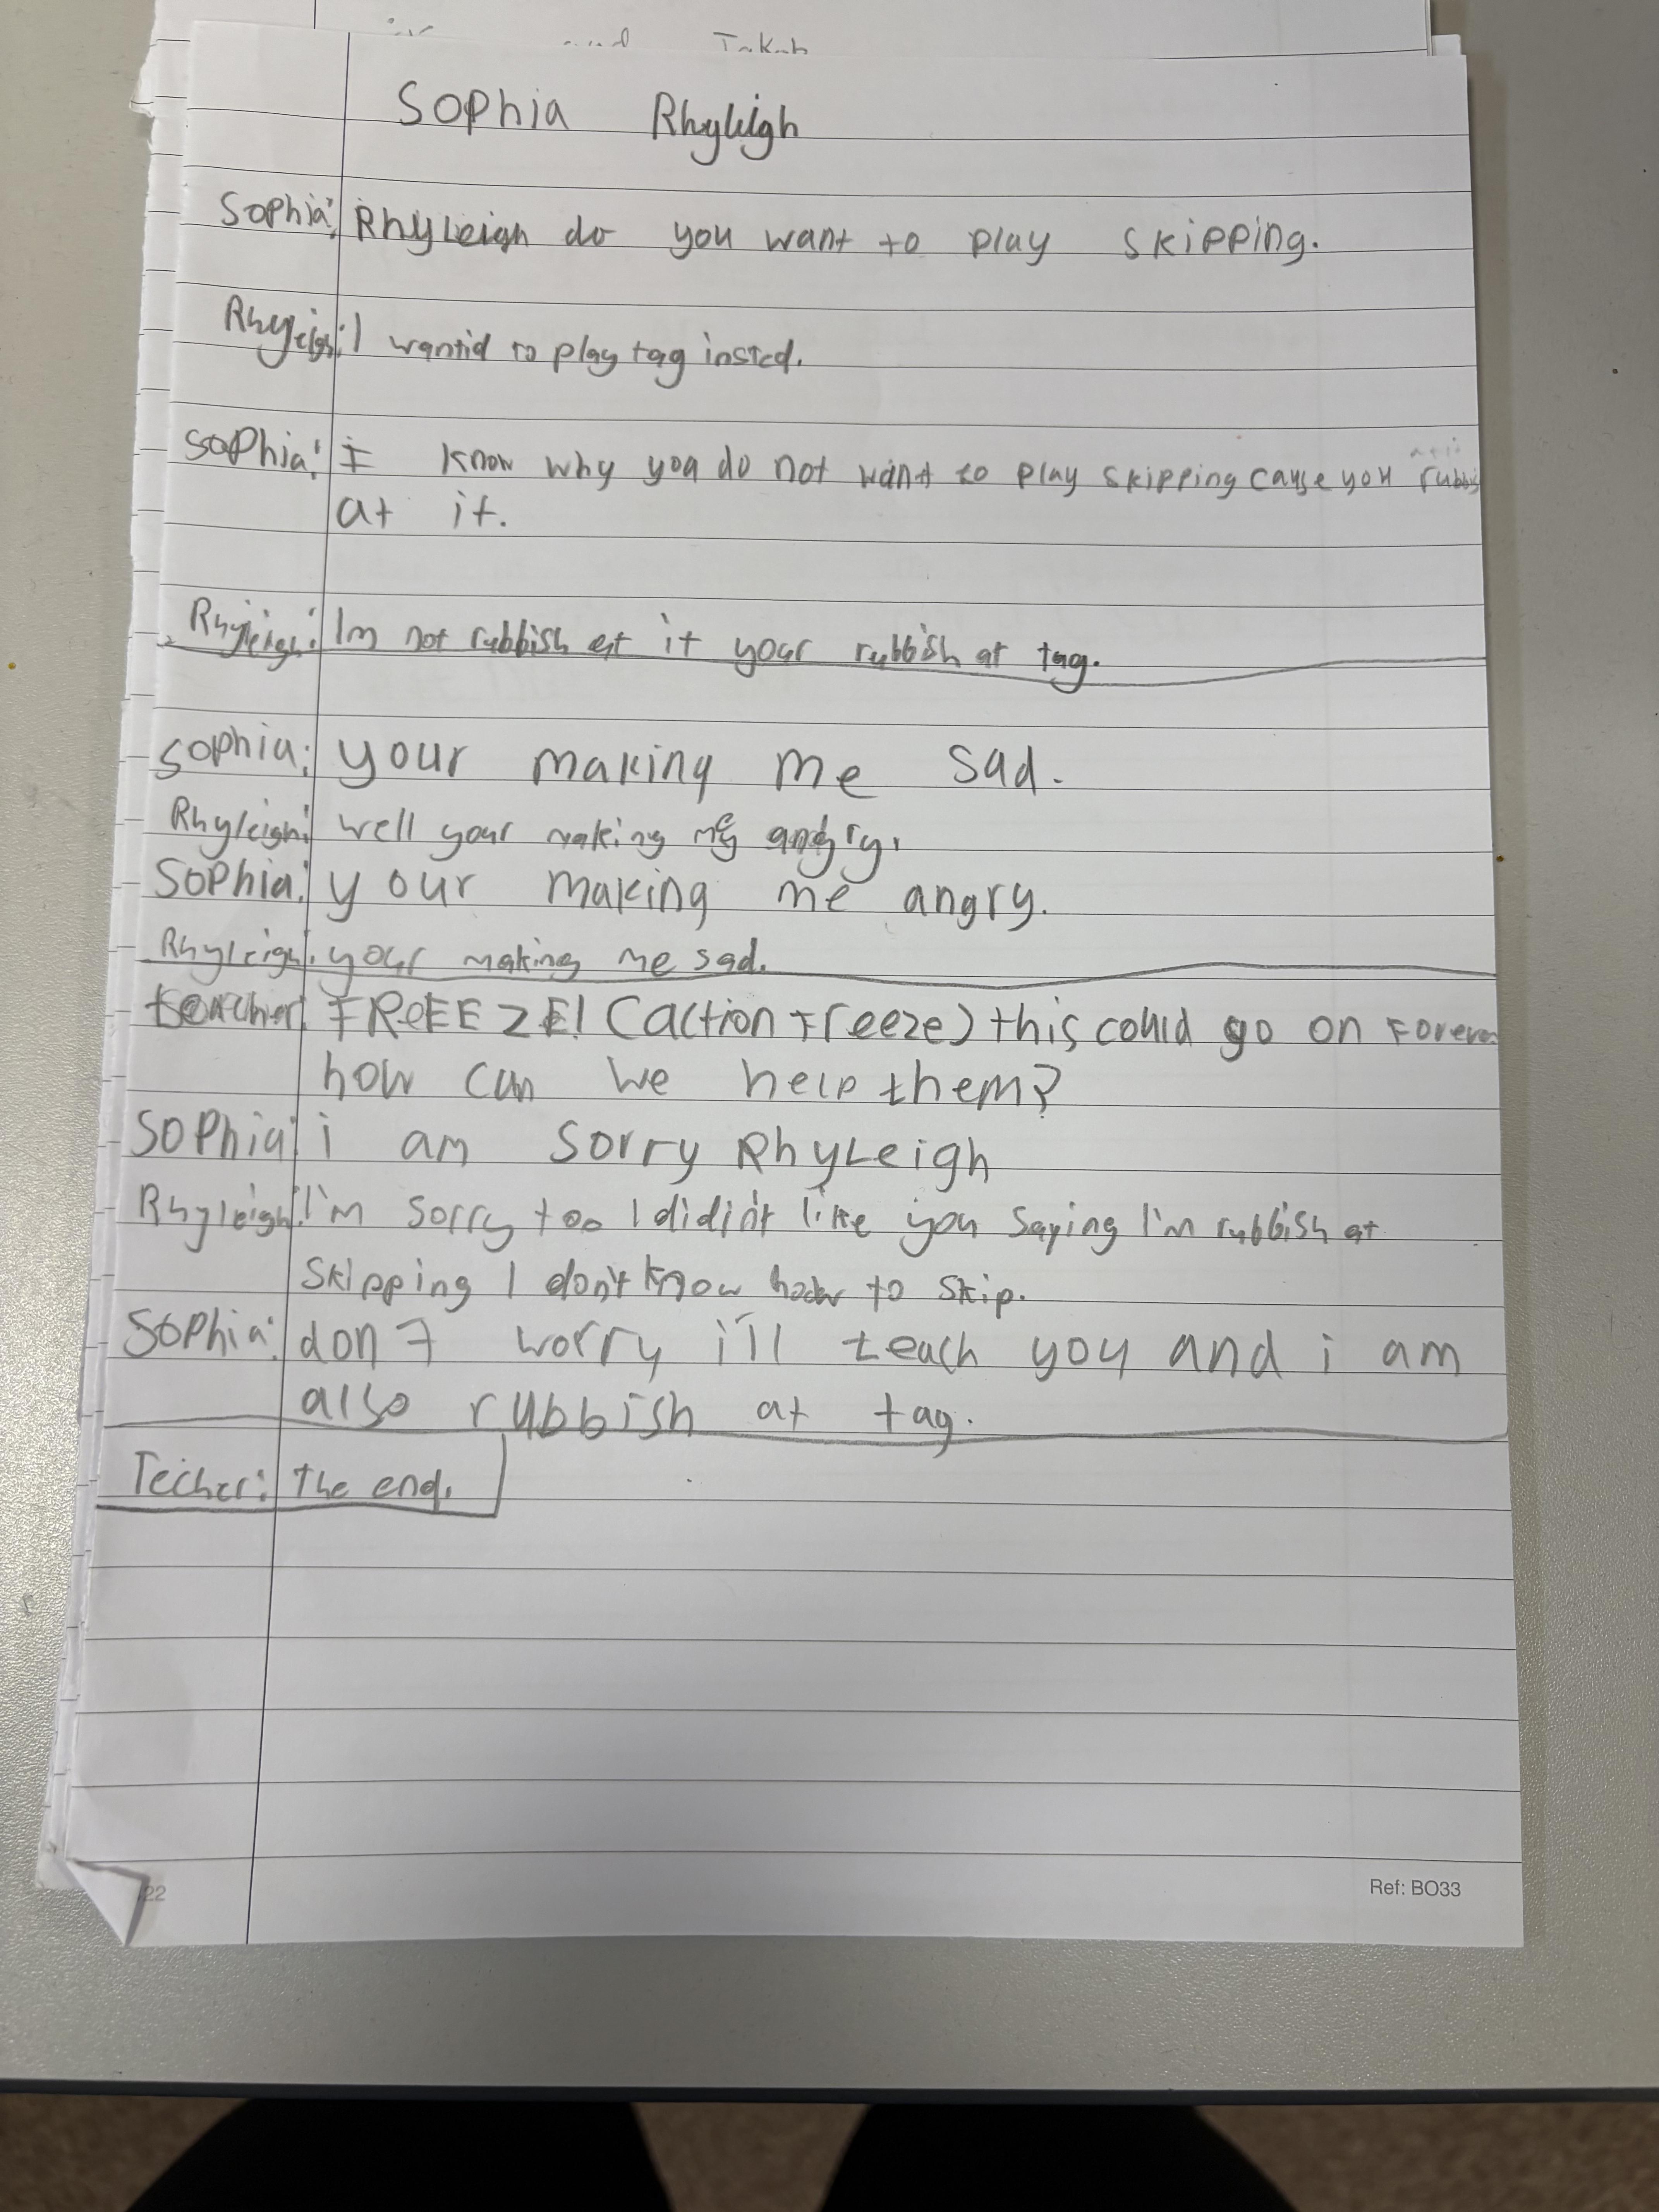 Sophia Rhyleigh
Sophia: Rhyleigh do you want to play skipping.
Rhyleigh: I wantid to play tag insted.
Sophia: I know why you do not want to play skipping cause you rubbis
at it.
Rhyleigh: Im not rubbish at it your rubbish at tag.
Sophia: your making me sad.
Rhyleigh: well your making me angry.
Sophia: your making me angry.
Rhyleigh: your making me sad.
teacher: FREEZE! (action Freeze) this could go on Forever
how can we help them?
Sophia: i am Sorry Rhyleigh
Rhyleigh: I'm sorry too I didin't like you saying I'm rubbish at
skipping I don't know how to skip.
Sophia: don't worry i'll teach you and i am
also rubbish at tag.
Techer: the end.
22 Ref: BO33